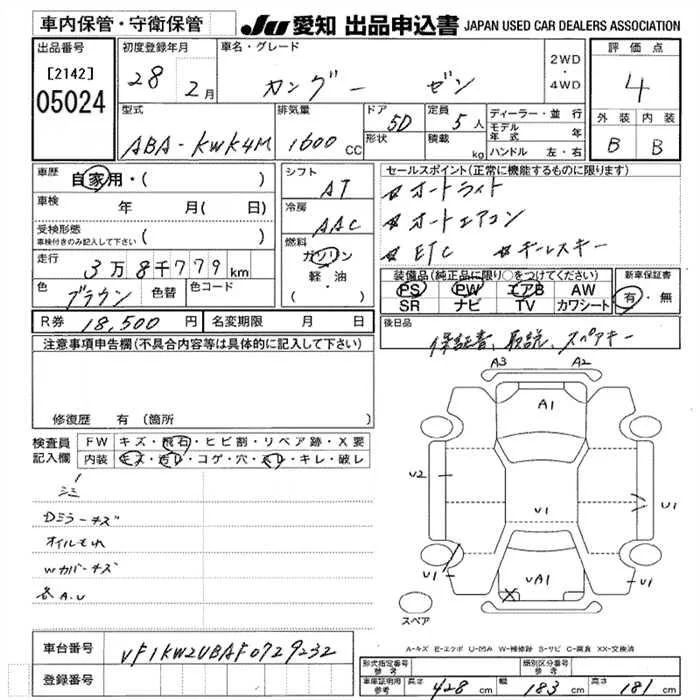 車内保管・守衛保管
JU 愛知 出品申込書 JAPAN USED CAR DEALERS ASSOCIATION
出品番号
[2142]
05024
初度登録年月
28 2月
車名・グレード
カングー ゼン
2WD
・
4WD
評価点
4
外装 内装
B B
型式
ABA-KWK4M
排気量
1600 CC
ドア
5D
形状
定員
5人
積載
kg
ディーラー・並行
モデル年式 年
ハンドル 左・右
車歴
自家用・( )
車検
年 月( 日)
受検形態
車検付きのみ記入して下さい ( )
走行
3万8千779km
色
ブラウン
色替
色コード
シフト
AT
冷房
AAC
燃料
ガソリン
軽・油
( ・ )
セールスポイント(正常に機能するものに限ります)
オートライト
オートエアコン
ETC キーレスキー
装備品(純正品に限り○をつけてください)
PS PW エアB AW
SR ナビ TV カワシート
新車保証書
有・無
R券 18,500円
名変期限 月 日
後日品
保証書、取説、スペアキー
注意事項申告欄(不具合内容等は具体的に記入して下さい)
修復歴 有(箇所
検査員
記入欄
FW キズ・飛石・ヒビ割・リペア跡・X要
内装 キズ・汚レ・コゲ・穴・スレ・キレ・破レ
シミ
Dミラーキズ
オイルもれ
Wカバーキズ
各A.U
A3 A2
A1
U2
U1
U1
U1
U1
UA1
X
スペア
A-キズ E-エクボ U-凹み W-補修跡 S-サビ C-腐食 XX-交換済
車台番号
VF1KW2UBAF0729232
登録番号
形式指定番号
参考
類別区分番号
参考
車庫証明用
参考
長さ 428 cm
幅 183 cm
高さ 181 cm